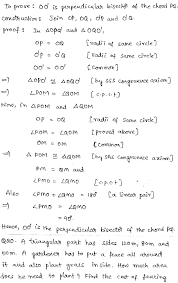 To prove: OO' is perpendicular bisector of the chord PQ.
Construction: Join OP, OQ, O'P and O'Q.
Proof: In ΔOPO' and ΔOQO',
OP = OQ [radii of same circle]
O'P = O'Q [radii of same circle]
OO' = OO' [Common]
⇒ ΔOPO' ≅ ΔOQO' [by SSS congruence axiom]
∠POM = ∠QOM [c.p.c.t]
Now, in ΔPOM and ΔQOM
OP = OQ [radii of same circle]
∠POM = ∠QOM [proved above]
OM = OM [Common]
⇒ ΔPOM ≅ ΔQOM [by SAS congruence axiom]
PM = QM and
∠PMO = ∠QMO [c.p.c.t]
Also ∠PMO + ∠QMO = 180° [a linear pair]
∠PMO = ∠QMO
= 90°.
Hence, OO' is the perpendicular bisector of the chord PQ.
A triangular park has sides 120m, 80m and
50m. A gardener has to put a fence all around
it and also plant grass inside. How much area
does he need to plant? Find the cost of fencing